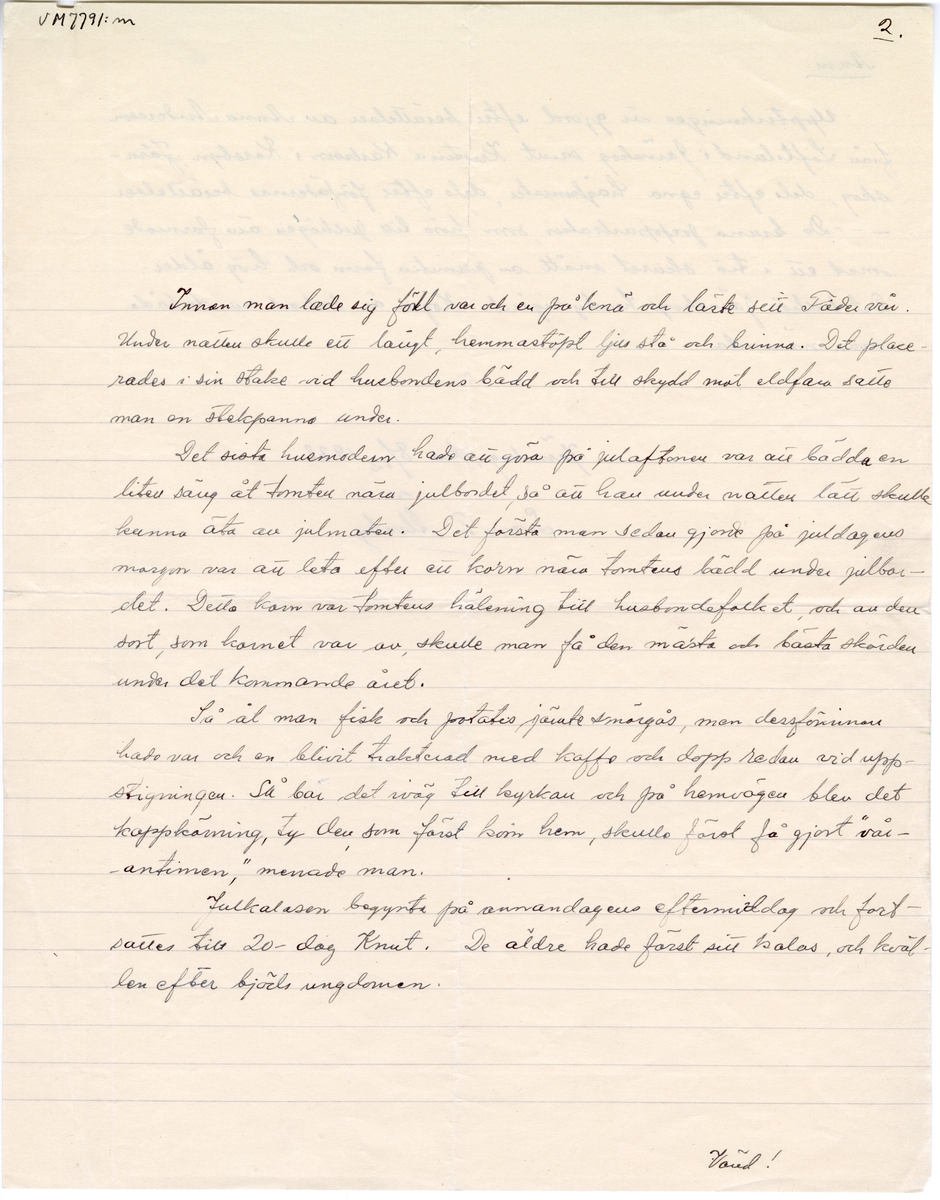 VM7791:m
2.
Innan man lade sig föll var och en på knä och läste sitt Fader vår.
Under natten skulle ett långt, hemmastöpt ljus stå och brinna. Det place-
rades i sin stake vid husbondens bädd och till skydd mot eldfara satte
man en stekpanna under.
Det sista husmodern hade att göra på julaftonen var att bädda en
liten säng åt tomten nära julbordet, så att han under natten lätt skulle
kunna äta av julmaten. Det första man sedan gjorde på juldagens
morgon var att leta efter ett korn nära tomtens bädd under julbor-
det. Detta korn var tomtens hälsning till husbondefolket, och av den
sort, som kornet var av, skulle man få den mästa och bästa skörden
under det kommande året.
Så åt man fisk och potatis jämte smörgås, men dessförinnan
hade var och en blivit trakterad med kaffe och dopp redan vid upp-
stigningen. Så bar det iväg till kyrkan och på hemvägen blev det
kappkörning, ty den, som först kom hem, skulle först få gjort "vår-
antimen," menade man.
Julkalasen begynte på annandagens eftermiddag och fort-
sattes till 20-dag Knut. De äldre hade först sitt kalas, och kväl-
len efter bjöds ungdomen.
Vänd!